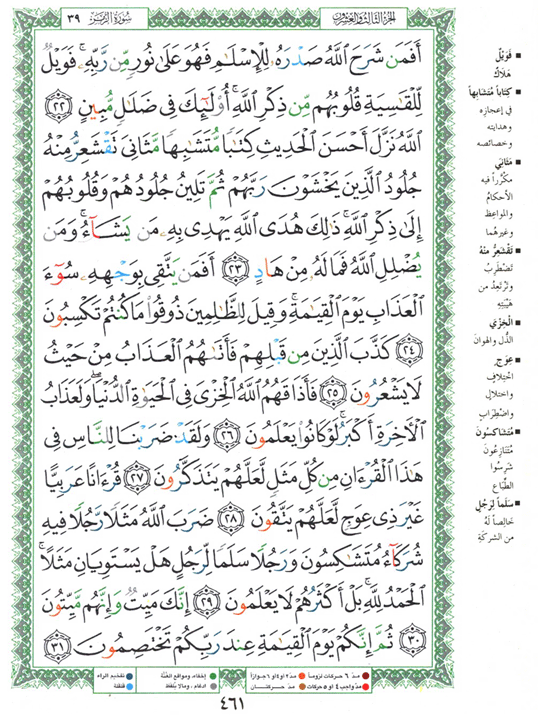 الجزء الثالث والعشرون
سورة الزمر
٣٩
أَفَمَن شَرَحَ ٱللَّهُ صَدْرَهُۥ لِلْإِسْلَٰمِ فَهُوَ عَلَىٰ نُورٍ مِّن رَّبِّهِۦ ۚ فَوَيْلٌ
لِّلْقَٰسِيَةِ قُلُوبُهُم مِّن ذِكْرِ ٱللَّهِ ۚ أُو۟لَٰٓئِكَ فِى ضَلَٰلٍ مُّبِينٍ ٢٢
ٱللَّهُ نَزَّلَ أَحْسَنَ ٱلْحَدِيثِ كِتَٰبًا مُّتَشَٰبِهًا مَّثَانِىَ تَقْشَعِرُّ مِنْهُ
جُلُودُ ٱلَّذِينَ يَخْشَوْنَ رَبَّهُمْ ثُمَّ تَلِينُ جُلُودُهُمْ وَقُلُوبُهُمْ
إِلَىٰ ذِكْرِ ٱللَّهِ ۚ ذَٰلِكَ هُدَى ٱللَّهِ يَهْدِى بِهِۦ مَن يَشَآءُ ۚ وَمَن
يُضْلِلِ ٱللَّهُ فَمَا لَهُۥ مِنْ هَادٍ ٢٣ أَفَمَن يَتَّقِى بِوَجْهِهِۦ سُوٓءَ
ٱلْعَذَابِ يَوْمَ ٱلْقِيَٰمَةِ ۚ وَقِيلَ لِلظَّٰلِمِينَ ذُوقُوا۟ مَا كُنتُمْ تَكْسِبُونَ
٢٤ كَذَّبَ ٱلَّذِينَ مِن قَبْلِهِمْ فَأَتَىٰهُمُ ٱلْعَذَابُ مِنْ حَيْثُ
لَا يَشْعُرُونَ ٢٥ فَأَذَاقَهُمُ ٱللَّهُ ٱلْخِزْىَ فِى ٱلْحَيَوٰةِ ٱلدُّنْيَا ۖ وَلَعَذَابُ
ٱلْءَاخِرَةِ أَكْبَرُ ۚ لَوْ كَانُوا۟ يَعْلَمُونَ ٢٦ وَلَقَدْ ضَرَبْنَا لِلنَّاسِ فِى
هَٰذَا ٱلْقُرْءَانِ مِن كُلِّ مَثَلٍ لَّعَلَّهُمْ يَتَذَكَّرُونَ ٢٧ قُرْءَانًا عَرَبِيًّا
غَيْرَ ذِى عِوَجٍ لَّعَلَّهُمْ يَتَّقُونَ ٢٨ ضَرَبَ ٱللَّهُ مَثَلًا رَّجُلًا فِيهِ
شُرَكَآءُ مُتَشَٰكِسُونَ وَرَجُلًا سَلَمًا لِّرَجُلٍ هَلْ يَسْتَوِيَانِ مَثَلًا ۚ
ٱلْحَمْدُ لِلَّهِ ۚ بَلْ أَكْثَرُهُمْ لَا يَعْلَمُونَ ٢٩ إِنَّكَ مَيِّتٌ وَإِنَّهُم مَّيِّتُونَ
٣٠ ثُمَّ إِنَّكُمْ يَوْمَ ٱلْقِيَٰمَةِ عِندَ رَبِّكُمْ تَخْتَصِمُونَ ٣١
فَوَيْلٌ
هَلاكٌ
كِتَاباً مُتَشَابِهاً
في إعجازِهِ
وهدايته
وخصائصه
مَثَانِيَ
مكرَّراً فيه
الأحكامُ
والمواعِظُ
وغيرهما
تَقْشَعِرُّ مِنْهُ
تَضْطَرِبُ
وتَرْتَعِدُ من
هَيْبَتِهِ
الْخِزْيَ
الذُّل والهوان
عِوَجٍ
اختِلافٍ
واختلالٍ
واضْطِرابٍ
مُتَشاكسُونَ
مُتَنَازِعُونَ
شَرِسُوا
الطِّبَاعِ
سَلَماً لِرَجُلٍ
خالِصاً لَهُ
من الشركةِ
مدّ ٦ حركات لزوماً
مدّ ٢ أو ٤ أو ٦ جوازاً
إخفاء، ومواقع الغُنَّة
تفخيم الراء
مدّ واجب ٤ أو ٥ حركات
مدّ حركتان
ادغام، ومالا يُلفَظ
قلقلة
٤٦١